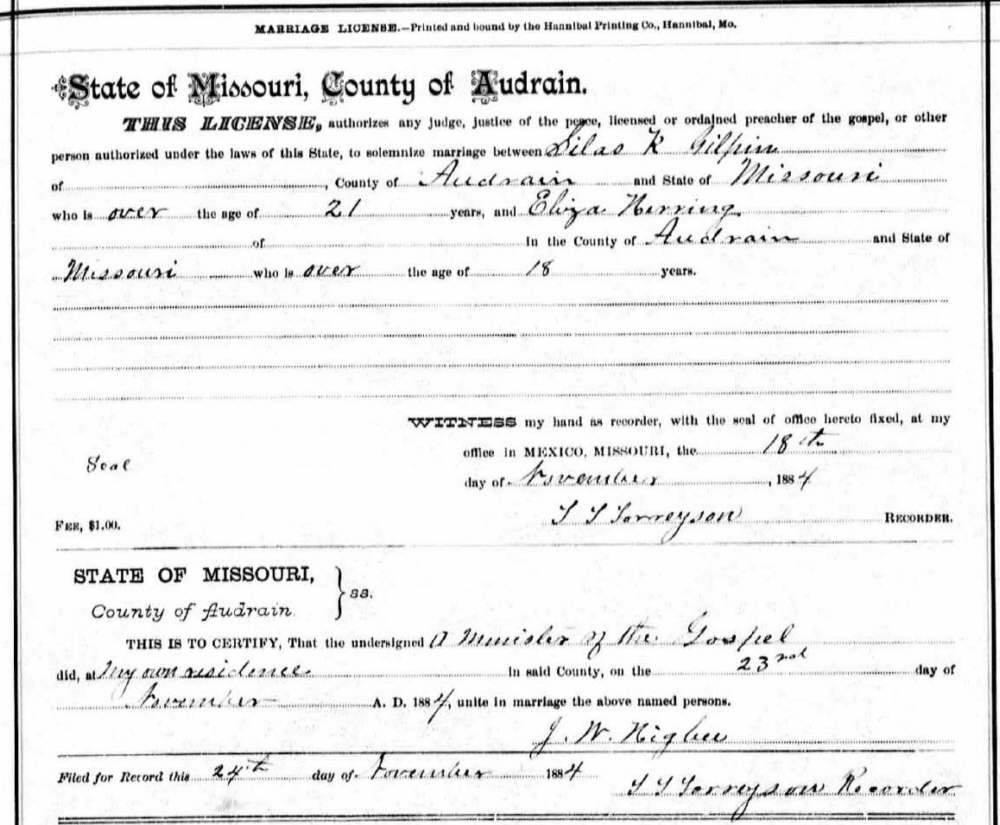 MARRIAGE LICENSE.—Printed and bound by the Hannibal Printing Co., Hannibal, Mo.
State of Missouri, County of Audrain.
THIS LICENSE, authorizes any judge, justice of the peace, licensed or ordained preacher of the gospel, or other
person authorized under the laws of this State, to solemnize marriage between Silas K Gilpin
of , County of Audrain and State of Missouri
who is over the age of 21 years, and Eliza Herring
of In the County of Audrain and State of
Missouri who is over the age of 18 years.
WITNESS my hand as recorder, with the seal of office hereto fixed, at my
office in MEXICO, MISSOURI, the 18th
Seal
day of November, 1884
S S Torreyson RECORDER.
FEE, $1.00.
STATE OF MISSOURI,
County of Audrain } ss.
THIS IS TO CERTIFY, That the undersigned A Minister of the Gospel
did, at My own residence In said County, on the 23rd day of
November A. D. 1884, unite in marriage the above named persons.
J. W. Higbee
Filed for Record this 24th day of November 1884
Torreyson Recorder